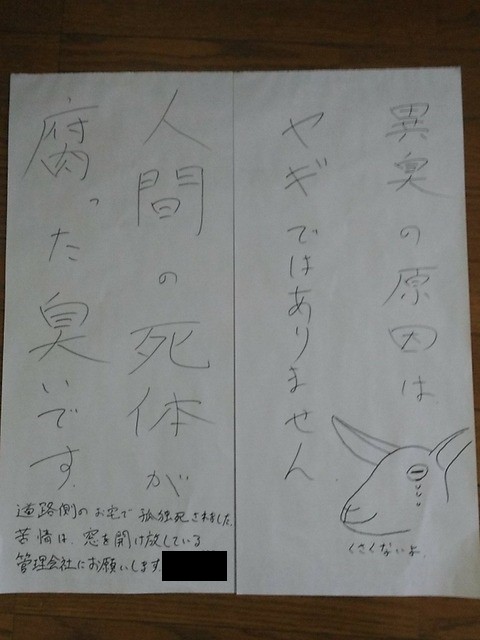 異臭の原因は
ヤギではありません
くさくないよ
人間の死体が
腐った臭いです
道路側のお宅で孤独死されました。
苦情は、窓を開け放している
管理会社にお願いします。